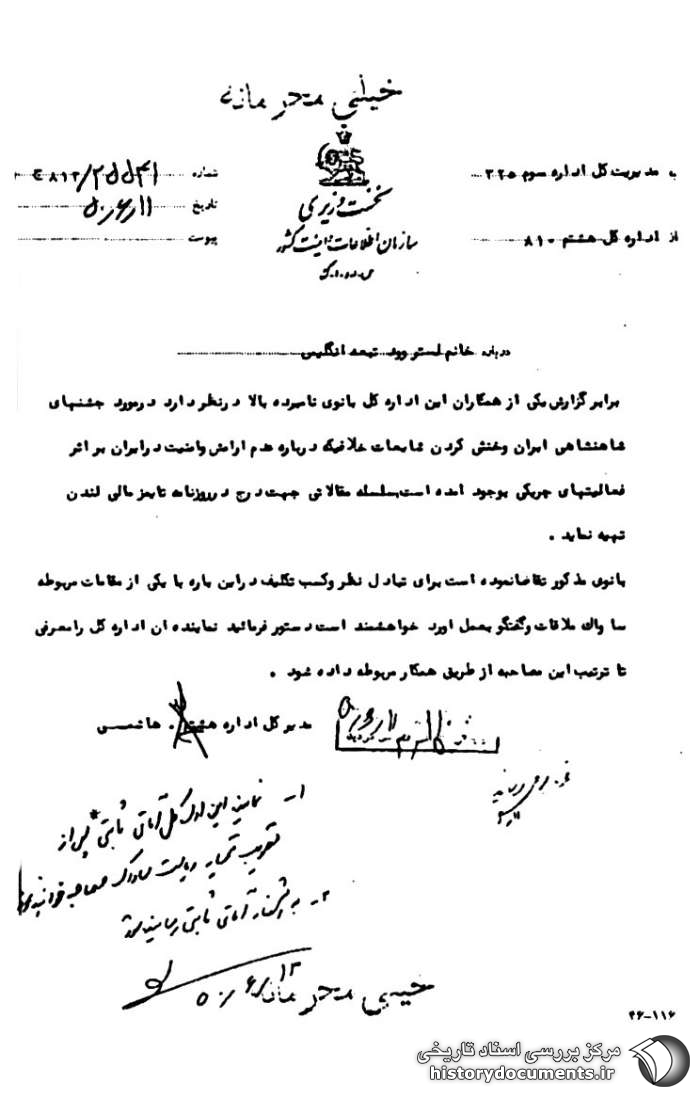 خیلی محرمانه
به مدیریت کل اداره سوم ۳۲۵
شماره ۲۵۵۴۱/۸۱۲
نخست وزیری
تاریخ ۵۰/۶/۱۱
از اداره کل هشتم ۸۱۰
سازمان اطلاعات و امنیت کشور
پیوست
س.ا.و.ا.ک
درباره خانم لستر وود تبعه انگلیس
برابر گزارش یکی از همکاران این اداره کل بانوی نامبرده بالا در نظر دارد در مورد جشنهای
شاهنشاهی ایران وخنثی کردن شایعات خلافیکه درباره عدم ارامش وامنیت در ایران بر اثر
فعالیتهای چریکی بوجود امده است سلسله مقالاتی جهت درج در روزنامه تایمز مالی لندن
تهیه نماید .
بانوی مذکور تقاضا نموده است برای تبادل نظر وکسب تکلیف در این باره با یکی از مقامات مربوطه
ساواك ملاقات وگفتگو بعمل اورد خواهشمند است دستور فرمائید نماینده ان اداره کل را معرفی
تا ترتیب این مصاحبه از طریق همکار مربوطه داده شود .
مدیر کل اداره هشتم . هاشمی
۱- نماینده این اداره کل آقای ثابتی* پس از
تصویب تیمسار ریاست ساواک مصاحبه خواهند نمود
۲- به استحضار آقای ثابتی رسانیده شود
۵۰/۶/۱۳
خیلی محرمانه
۴۶-۱۱۶
مرکز بررسی اسناد تاریخی
historydocuments.ir